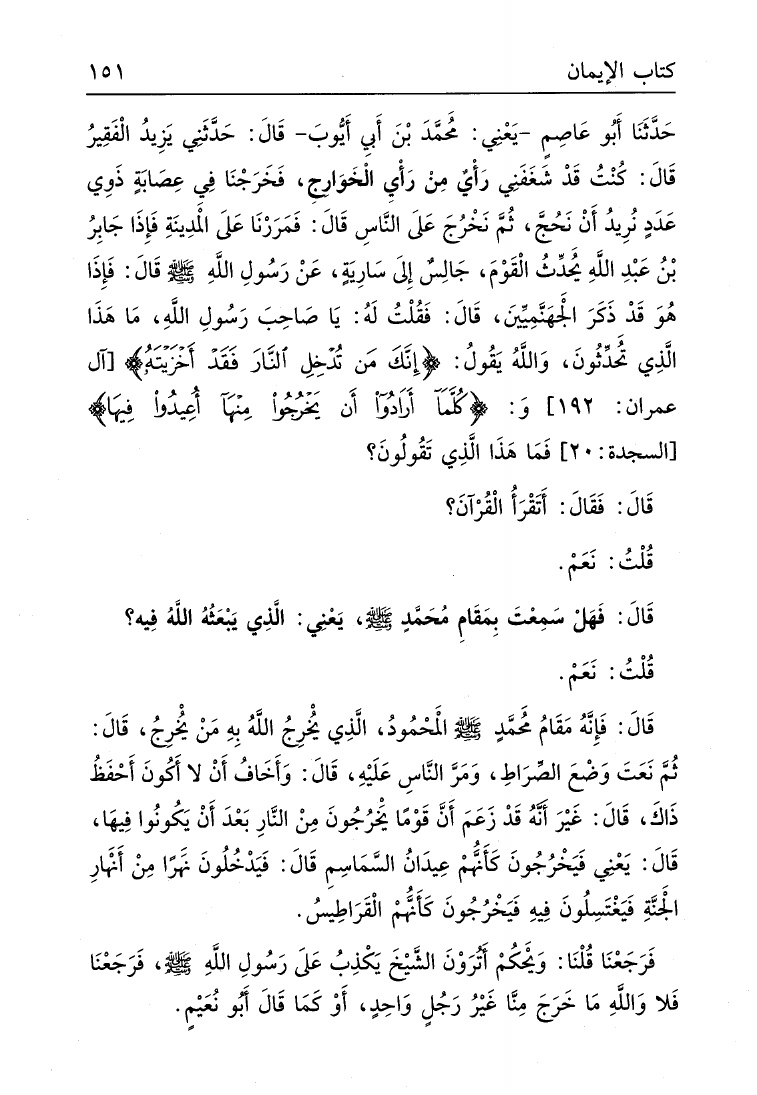 كتاب الإيمان ١٥١
حَدَّثَنَا أَبُو عَاصِمٍ -يَعْنِي: مُحَمَّدَ بْنَ أَبِي أَيُّوبَ- قَالَ: حَدَّثَنِي يَزِيدُ الْفَقِيرُ
قَالَ: كُنْتُ قَدْ شَغَفَنِي رَأْيٌ مِنْ رَأْيِ الْخَوَارِجِ، فَخَرَجْنَا فِي عِصَابَةٍ ذَوِي
عَدَدٍ نُرِيدُ أَنْ نَحُجَّ، ثُمَّ نَخْرُجَ عَلَى النَّاسِ قَالَ: فَمَرَرْنَا عَلَى الْمَدِينَةِ فَإِذَا جَابِرُ
بْنُ عَبْدِ اللَّهِ يُحَدِّثُ الْقَوْمَ، جَالِسٌ إِلَى سَارِيَةٍ، عَنْ رَسُولِ اللَّهِ ﷺ قَالَ: فَإِذَا
هُوَ قَدْ ذَكَرَ الْجَهَنَّمِيِّينَ، قَالَ: فَقُلْتُ لَهُ: يَا صَاحِبَ رَسُولِ اللَّهِ، مَا هَذَا
الَّذِي تُحَدِّثُونَ، وَاللَّهُ يَقُولُ: ﴿إِنَّكَ مَن تُدْخِلِ ٱلنَّارَ فَقَدْ أَخْزَيْتَهُۥ﴾ [آل
عمران: ١٩٢] وَ: ﴿كُلَّمَآ أَرَادُوٓا۟ أَن يَخْرُجُوا۟ مِنْهَآ أُعِيدُوا۟ فِيهَا﴾
[السجدة: ٢٠] فَمَا هَذَا الَّذِي تَقُولُونَ؟
قَالَ: فَقَالَ: أَتَقْرَأُ الْقُرْآنَ؟
قُلْتُ: نَعَمْ.
قَالَ: فَهَلْ سَمِعْتَ بِمَقَامِ مُحَمَّدٍ ﷺ، يَعْنِي: الَّذِي يَبْعَثُهُ اللَّهُ فِيهِ؟
قُلْتُ: نَعَمْ.
قَالَ: فَإِنَّهُ مَقَامُ مُحَمَّدٍ ﷺ الْمَحْمُودُ، الَّذِي يُخْرِجُ اللَّهُ بِهِ مَنْ يُخْرِجُ، قَالَ:
ثُمَّ نَعَتَ وَضْعَ الصِّرَاطِ، وَمَرَّ النَّاسِ عَلَيْهِ، قَالَ: وَأَخَافُ أَنْ لا أَكُونَ أَحْفَظُ
ذَاكَ، قَالَ: غَيْرَ أَنَّهُ قَدْ زَعَمَ أَنَّ قَوْمًا يَخْرُجُونَ مِنْ النَّارِ بَعْدَ أَنْ يَكُونُوا فِيهَا،
قَالَ: يَعْنِي فَيَخْرُجُونَ كَأَنَّهُمْ عِيدَانُ السَّمَاسِمِ قَالَ: فَيَدْخُلُونَ نَهَرًا مِنْ أَنْهَارِ
الْجَنَّةِ فَيَغْتَسِلُونَ فِيهِ فَيَخْرُجُونَ كَأَنَّهُمْ الْقَرَاطِيسُ.
فَرَجَعْنَا قُلْنَا: وَيْحَكُمْ أَتُرَوْنَ الشَّيْخَ يَكْذِبُ عَلَى رَسُولِ اللَّهِ ﷺ، فَرَجَعْنَا
فَلا وَاللَّهِ مَا خَرَجَ مِنَّا غَيْرُ رَجُلٍ وَاحِدٍ، أَوْ كَمَا قَالَ أَبُو نُعَيْمٍ.